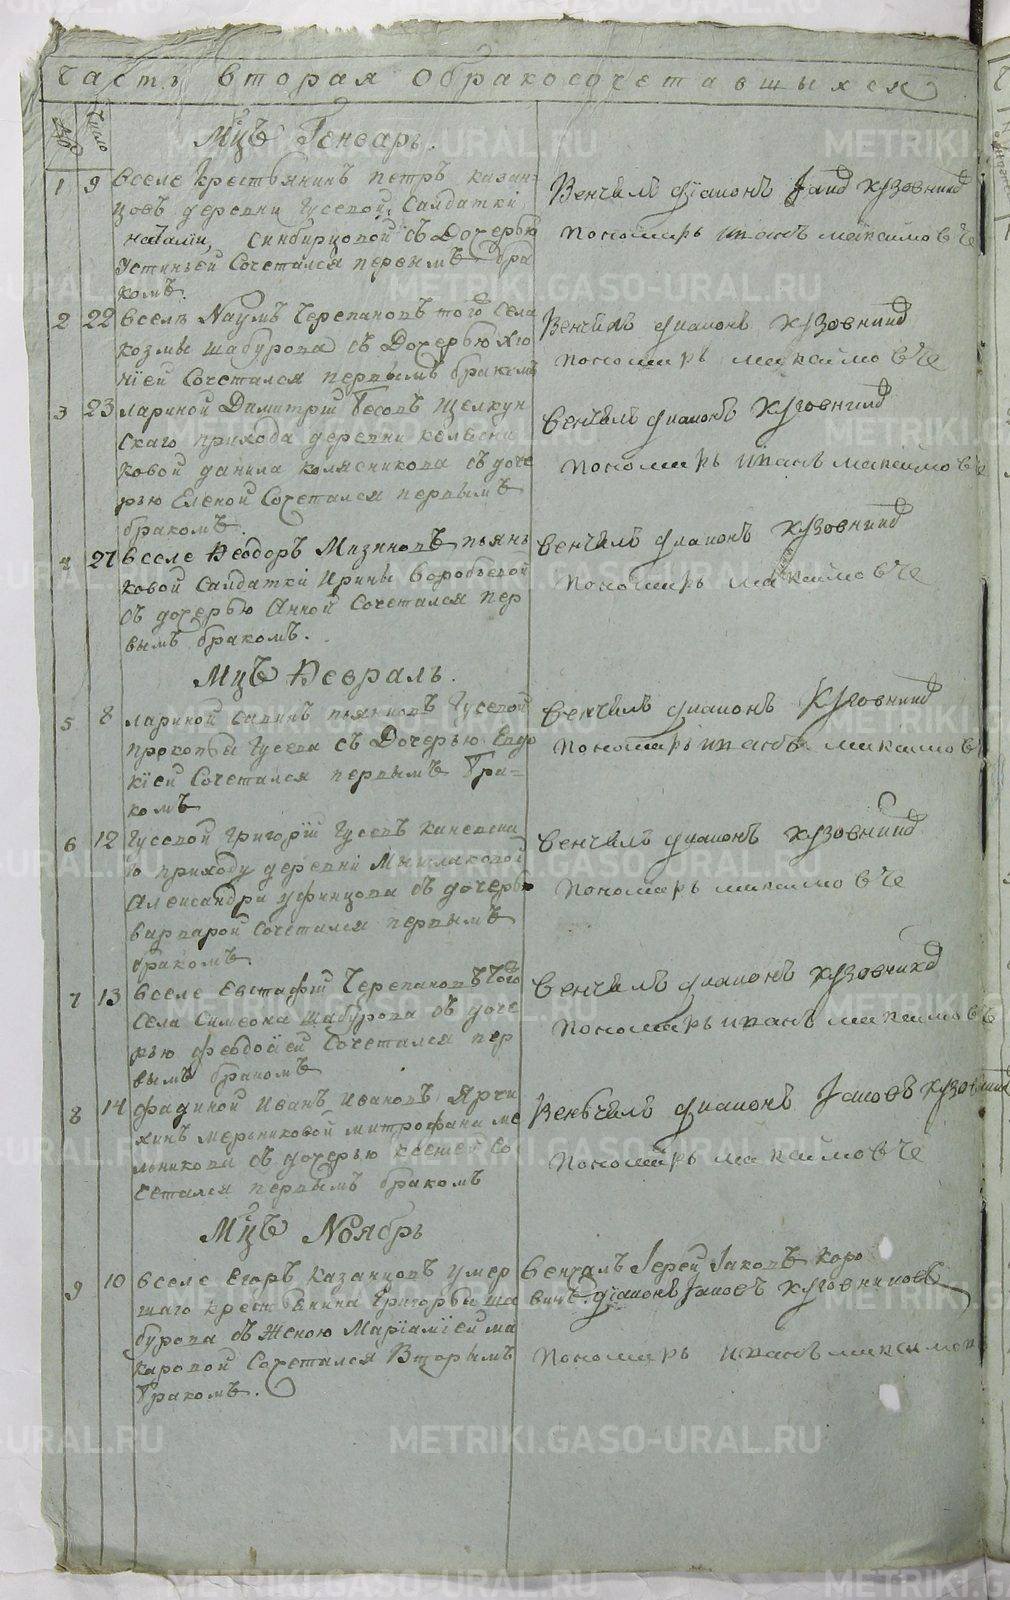 Часть вторая обракосочетавшыхся
Число
Мцъ Генварь.
1 9 вселе Крестьянинъ петръ казан-
цовъ деревни Гусевой, Салдатки
наталіи, синбирцовой съ Дочерью
Устиньей Сочетался первымъ бра
комъ.
Венчалъ діаконъ
пономарь иванъ максимовъ
2 22 вселѣ Наумъ Черепановъ того села
козмы шабурова съ Дочерью
Сочетался первымъ бракомъ
Венчалъ діаконъ
пономарь максимовъ
3 23 лариной Димитрій Бесовъ Щелкун
скаго прихода деревни колясни
ковой данила колясникова съ доче
рью Еленой Сочетался первымъ
бракомъ.
венчалъ діаконъ
пономарь иванъ максимовъ
4 27 вселе Ѳеодоръ Мизиновъ пьянь
ковой Салдатки Ирины Воробьевой
съ дочерью Анной Сочетался пер
вымъ бракомъ.
венчалъ діаконъ
пономарь максимовъ
Мцъ Ѳевраль.
5 8 лариной савинъ пьянковъ Гусевой
прокопья Гусева съ Дочерью Евдо
кіей Сочетался первымъ Бра-
комъ
венчалъ діаконъ
пономарь иванъ максимовъ
6 12 Гусевой Григорій Гусевъ
ю приходу деревни
Александра уфинцова съ дочерью
варварой Сочетался первымъ
бракомъ.
венчалъ діаконъ
пономарь максимовъ
7 13 вселе Евстафій Черепановъ того
Села Симеона шабурова съ доче
рью феодосіей Сочетался пер
вымъ бракомъ
венчалъ діаконъ
пономарь иванъ максимовъ
8 14 фадиной Иванъ Ивановъ Ярчи
хинъ мельниковой митрофана ме
льникова съ дочерью ксенией Со
сетался первымъ бракомъ
Венчалъ діаконъ Іаковъ
пономарь максимовъ
Мцъ Ноябрь
9 10 вселе Егоръ Казанцовъ умер
шаго крестьянина Григорья ша
бурова съ Женою Маріаміей ма
каровой Сочетался Вторымъ
Бракомъ.
венчалъ Іерей Іаковъ Коро
винъ діаконъ Іаковъ кузовниковъ
пономарь иванъ максимовъ
METRIKI.GASO-URAL.RU